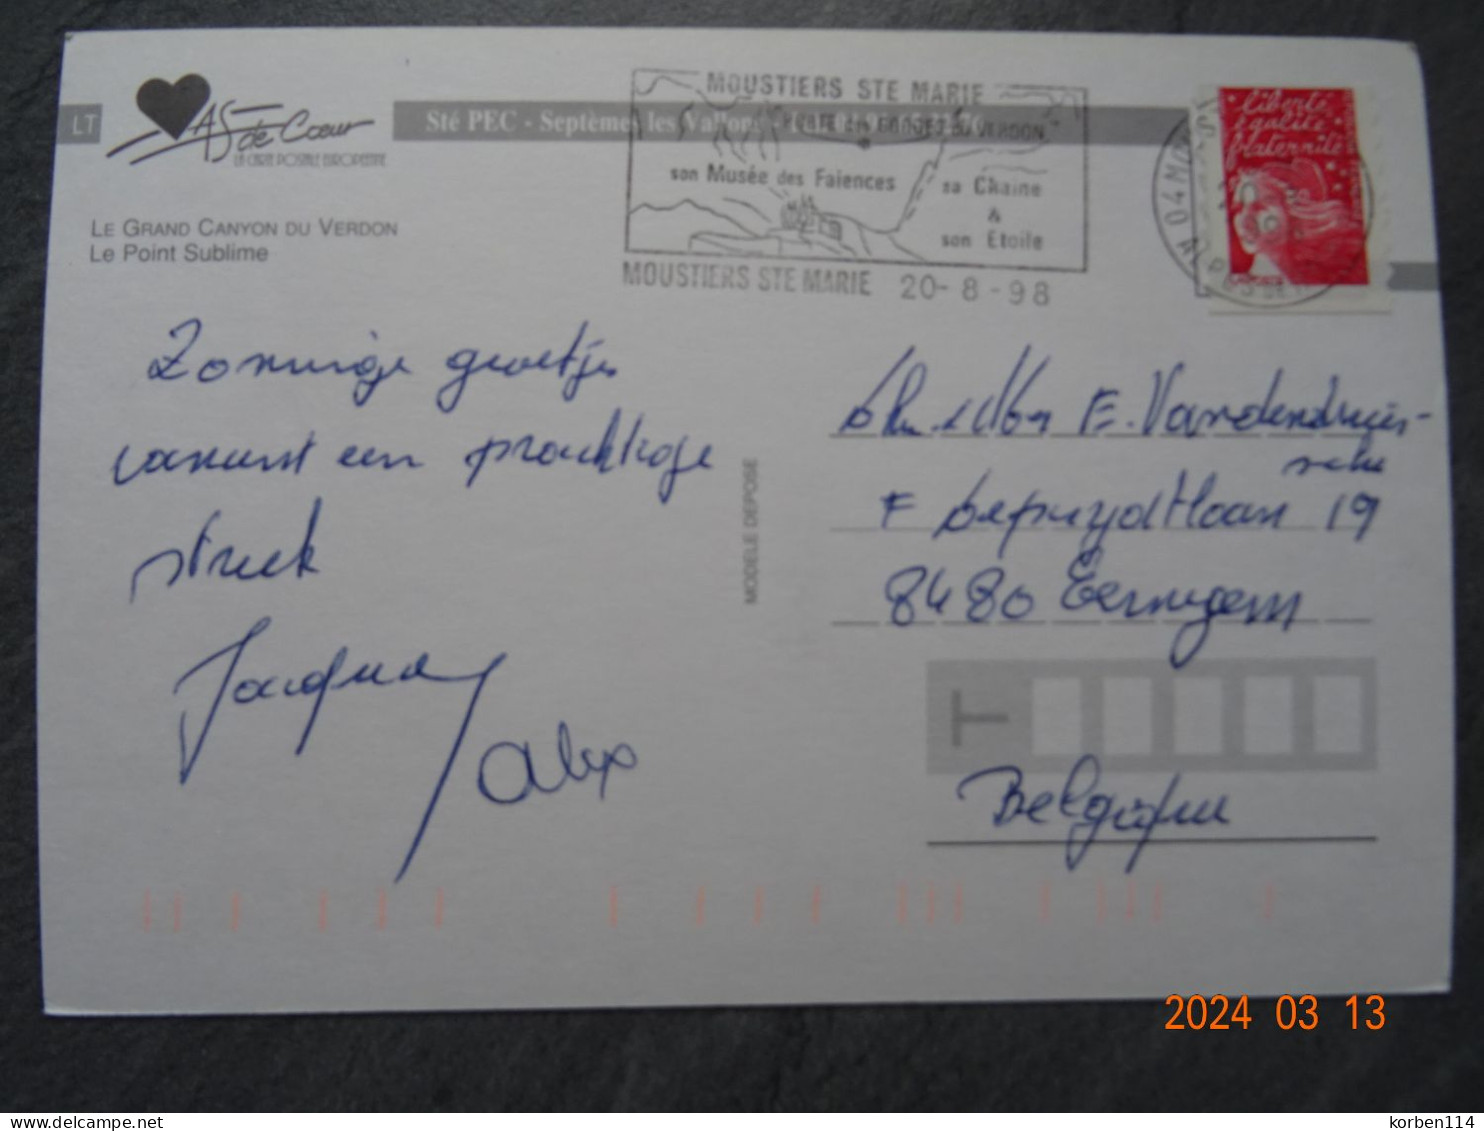 LT
AS de Cœur
LA CARTE POSTALE EUROPEENNE
Sté PEC - Septèmes les Vallons
LE GRAND CANYON DU VERDON
Le Point Sublime
MOUSTIERS STE MARIE
PORTE des GORGES du VERDON
son Musée des Faiences
sa Chaine
&
son Etoile
MOUSTIERS STE MARIE 20-8-98
liberté
égalité
fraternité
Zonnige groetjes
vanuit een prachtige
streek
Jacques
Alex
MODELE DEPOSE
E. Vandendries-
sche
F Depuydtlaan 19
8480 Eernegem
T
Belgique
2024 03 13
korben114